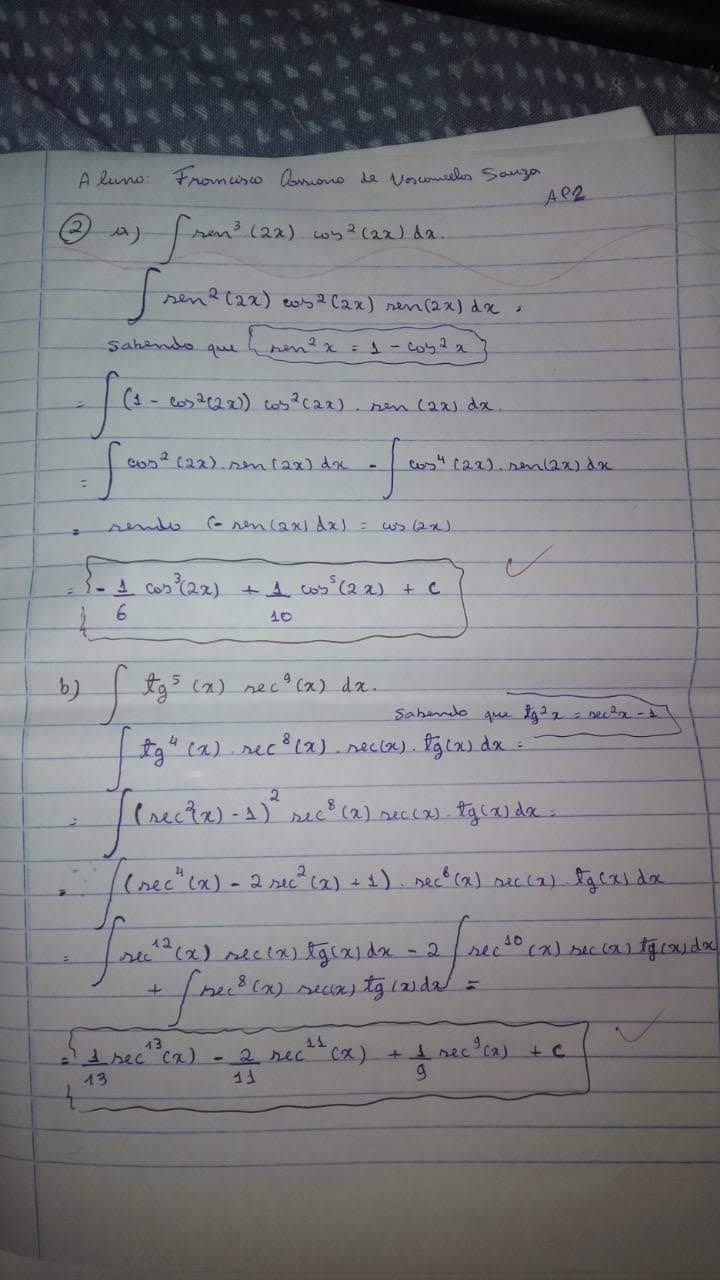 Aluno: Francisco de Vasconcelos Souza
AP2
② a) ∫ sen³(2x) cos²(2x) dx.
∫ sen²(2x) cos²(2x) sen(2x) dx =
Sabendo que sen²x = 1 - cos²x
= ∫ (1 - cos²(2x)) cos²(2x) . sen(2x) dx.
= ∫ cos²(2x) . sen(2x) dx - ∫ cos⁴(2x) . sen(2x) dx
= sendo (- sen(2x) dx) = cos(2x)
= - 1/6 cos³(2x) + 1/10 cos⁵(2x) + c
b) ∫ tg⁵(x) sec⁹(x) dx.
Sabendo que tg²x = sec²x - 1
∫ tg⁴(x) . sec⁸(x) . sec(x) . tg(x) dx =
= ∫ (sec²(x) - 1)² sec⁸(x) sec(x) . tg(x) dx =
= ∫ (sec⁴(x) - 2 sec²(x) + 1) . sec⁸(x) sec(x) . tg(x) dx
= ∫ sec¹²(x) sec(x) tg(x) dx - 2 ∫ sec¹⁰(x) sec(x) tg(x) dx
+ ∫ sec⁸(x) sec(x) tg(x) dx =
= 1/13 sec¹³(x) - 2/11 sec¹¹(x) + 1/9 sec⁹(x) + c